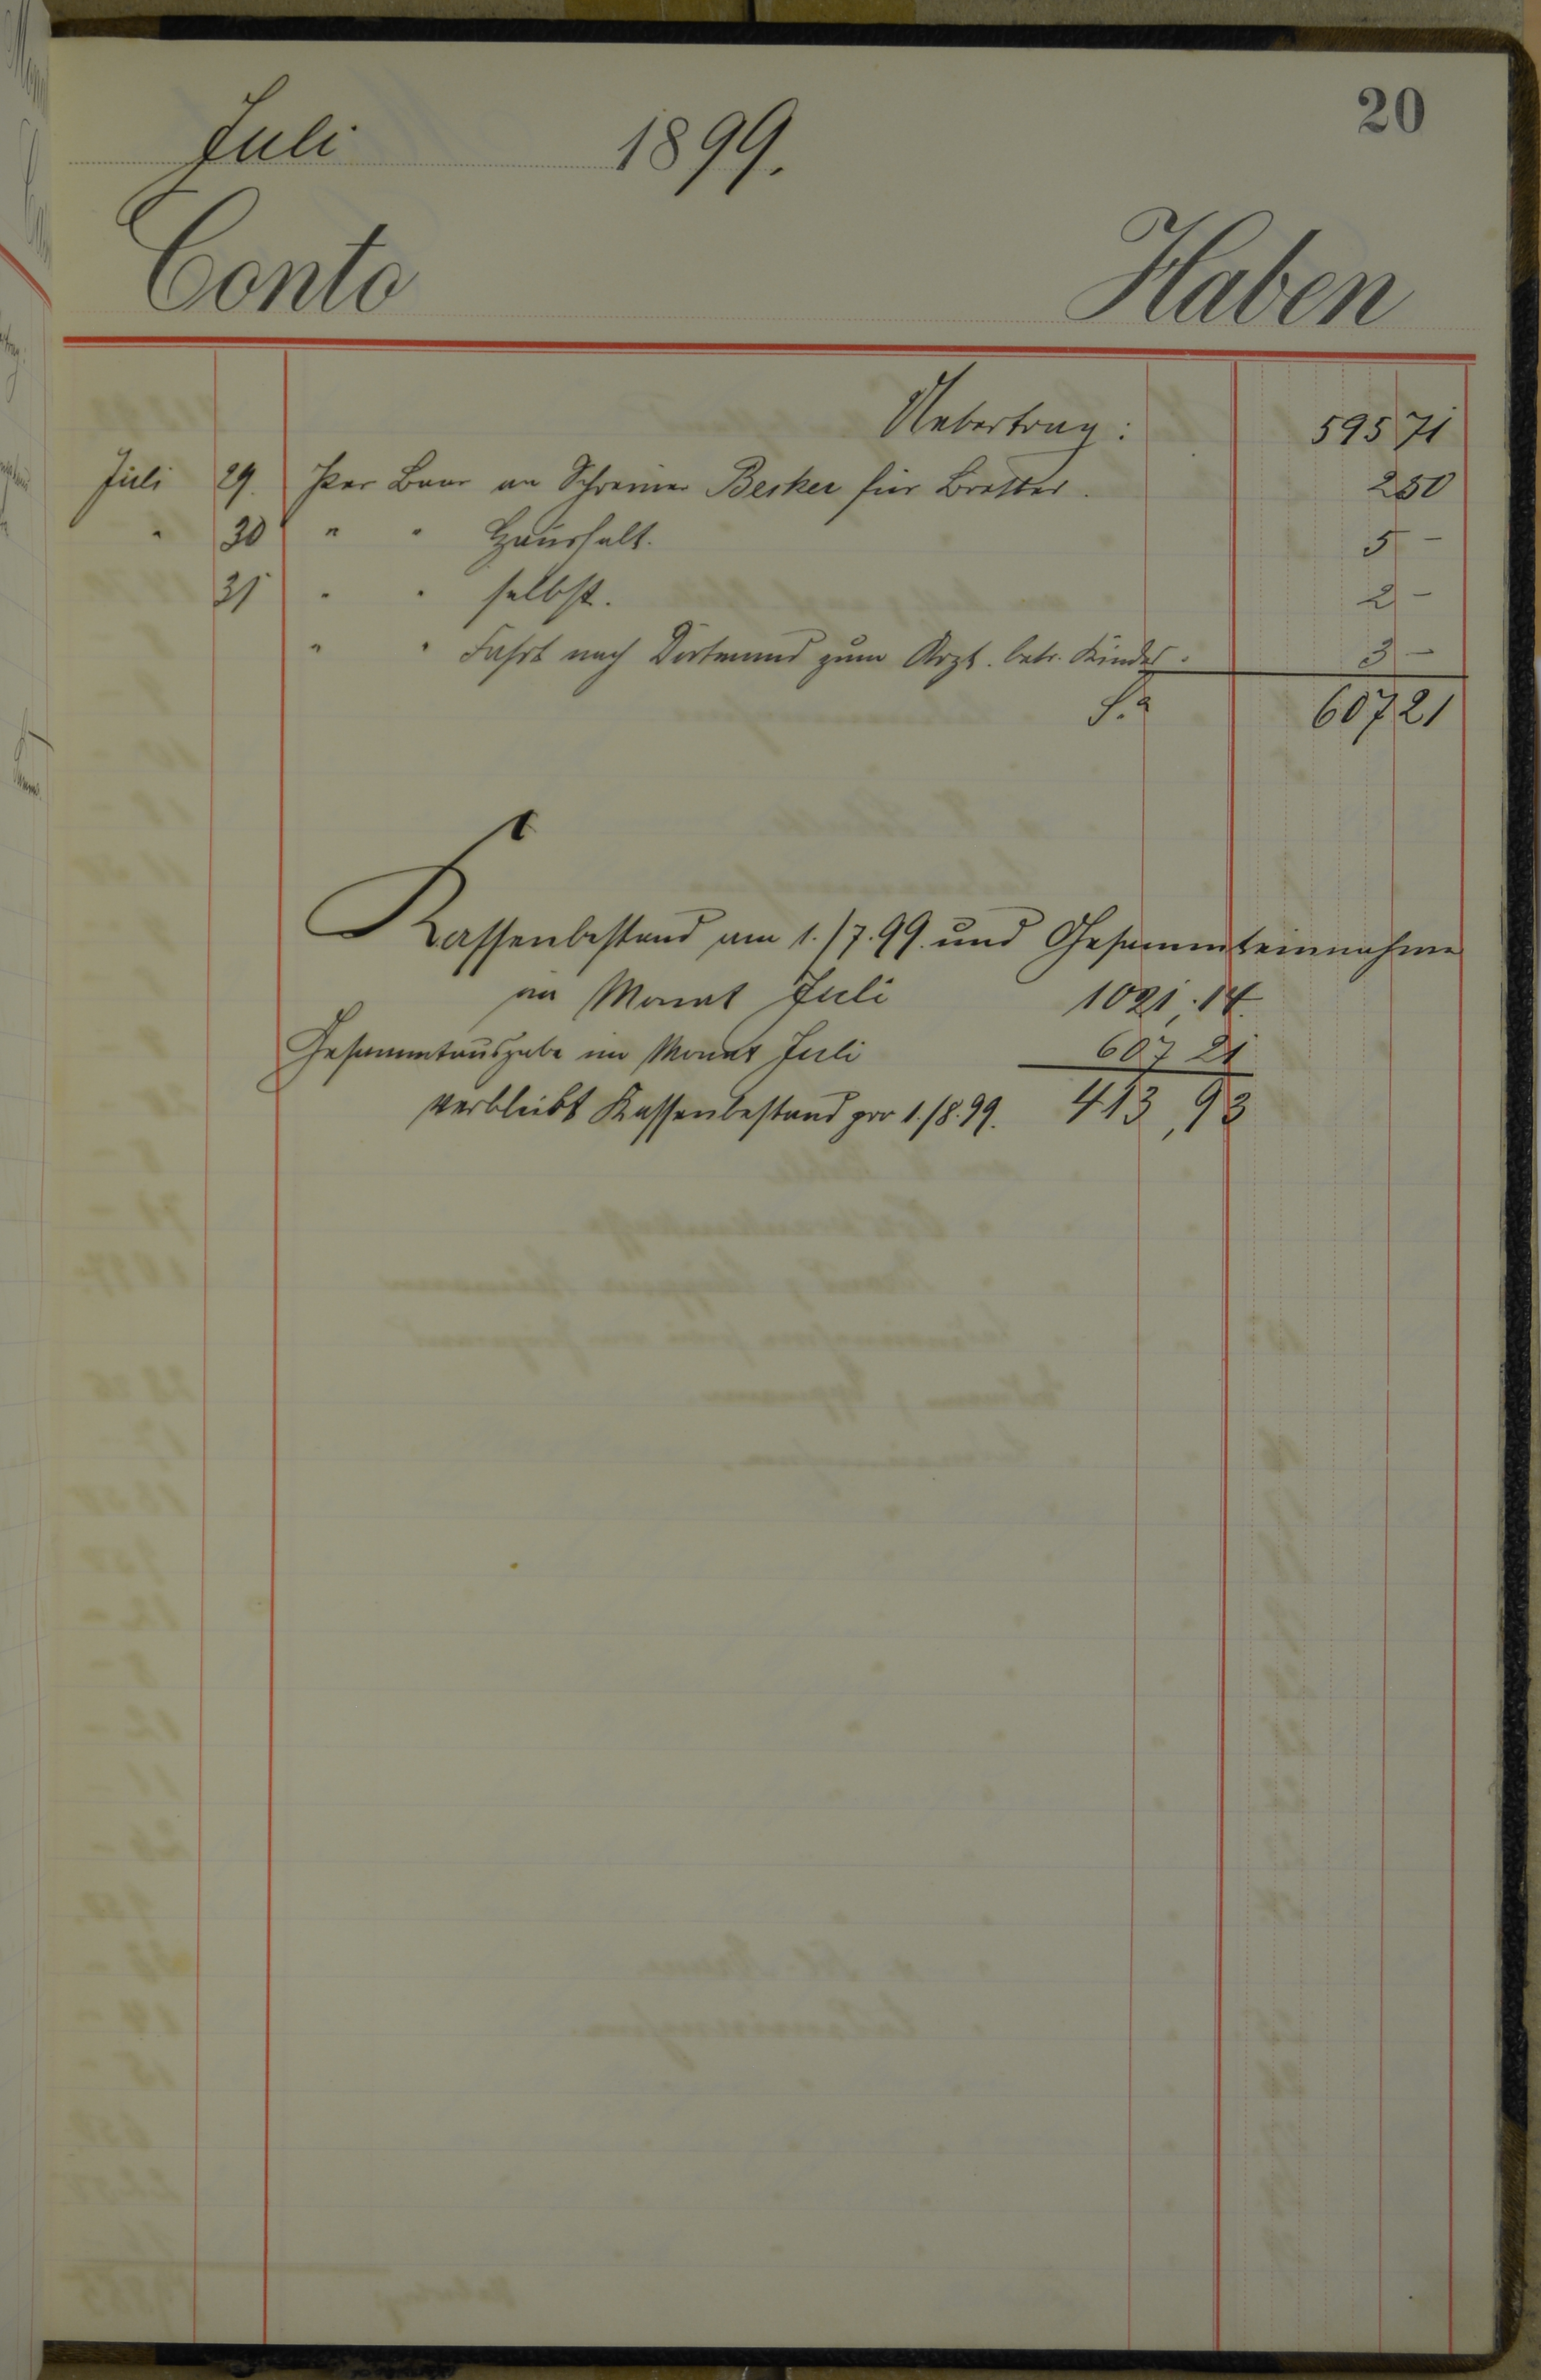 20
Juli 1899.
Conto Haben
Uebertrag: 595 71
Juli 29. Per Baar an Schreiner Becker für Bretter. 2 50
" 30 " " Haushalt. 5 -
31 " " selbst. 2 -
" " Fahrt nach Dortmund zum Arzt. betr. Kindes. 3 -
S.a 607 21
Kassenbestand am 1./7.99. und Gesammteinnahme
im Monat Juli 1021,14.
Gesammtausgabe im Monat Juli 607 21
verbleibt Kassenbestand por 1./8.99. 413,93